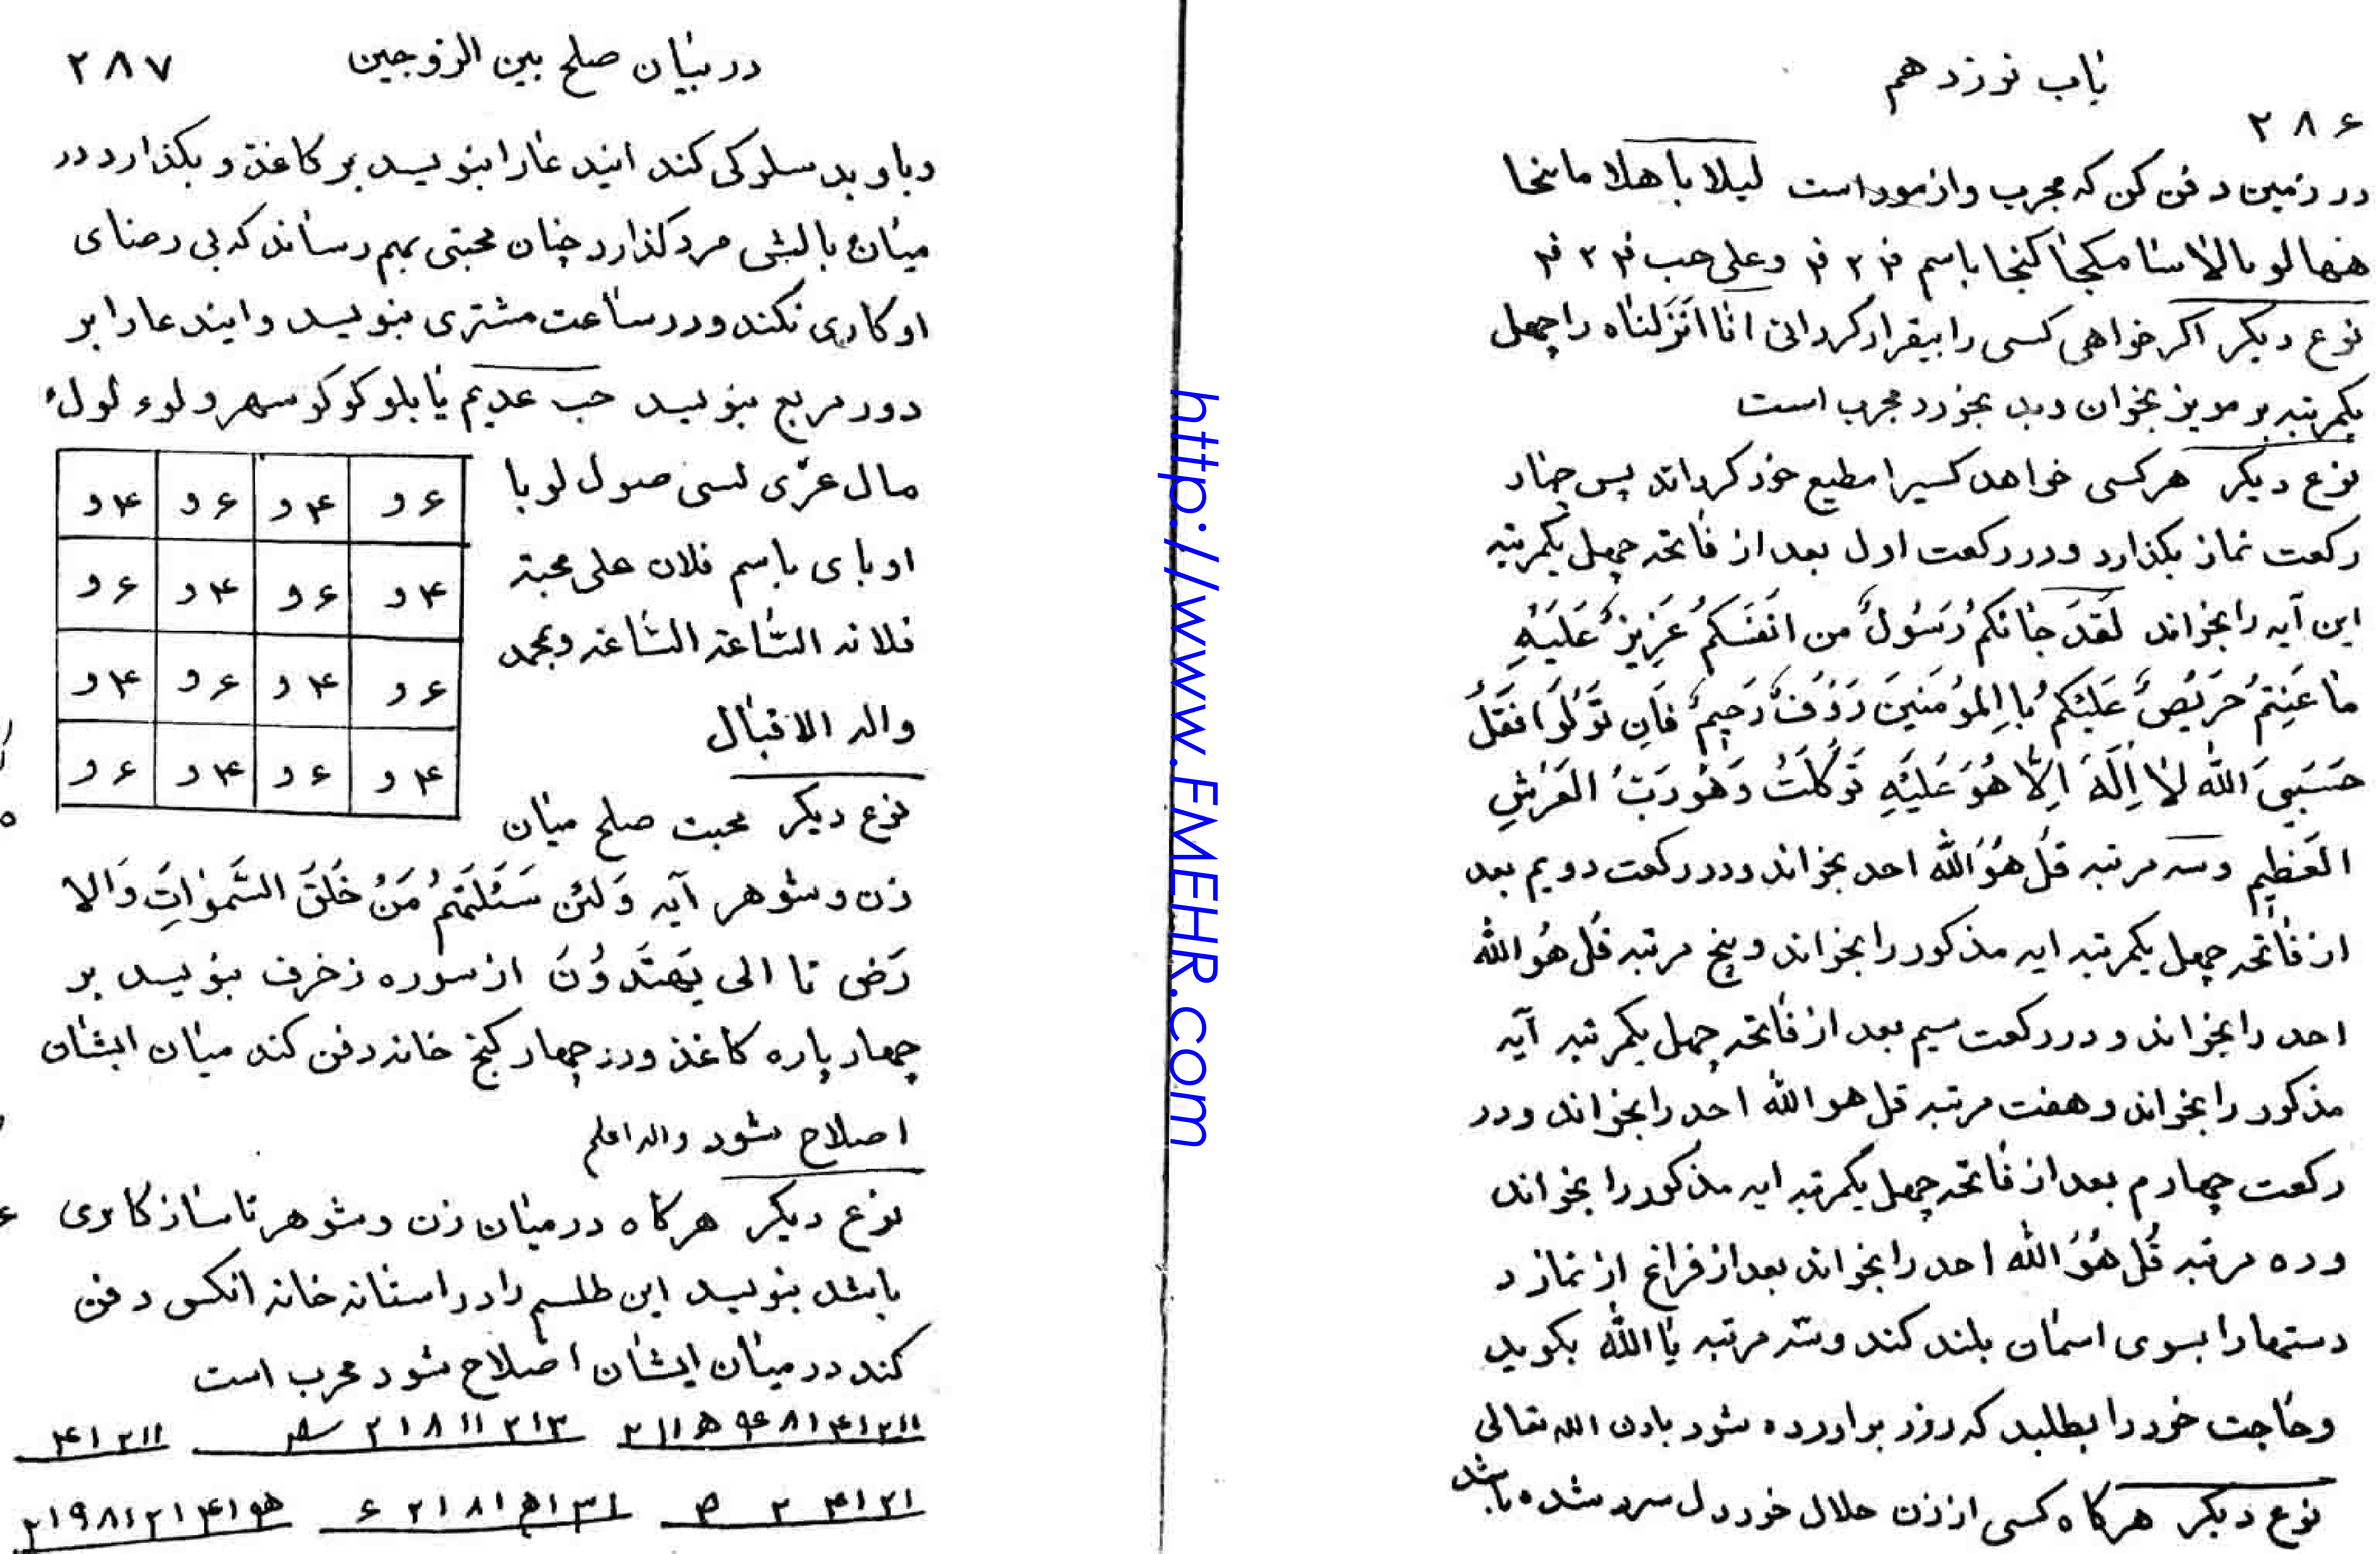 باب نوزدهم
۲۸۶
در زمین دفن کن که مجرب و ازموداست لیلا با هلا ما
باسم ف۲ ۲ ف۲ وعلی حب ف۲ ۲ ف۲
نوع دیگر اکر خواهی کسی را بیقرار کردانی انا انزلناه را چهل
یکمرتبه بر مویز بخوان وبد بخورد مجرب است
نوع دیگر هر کسی خواهد کسیرا مطیع خود کرداند پس چهار
رکعت نماز بکذارد ودر رکعت اول بعد از فاتحه چهل یکمرتبه
این آیه را بخواند لَقَدَ جٰائکُم رَسُولٌ من انَفَسَکُم عَزِیزٌ عَلَیَهِ
مٰا عَنِتمُ حَرَیُصٌ عَلَیَکُم بُا اِلمؤُمَنینَ رَؤُفٌ رَحِیمٌ فَاِن تَوَلَوَا فَقَلُ
حَسَبِیَ الله لاٰ اِلَهَ اِلّٰا هُوَ عَلَیَهِ تَوَکَلَتُ وَهُوَ رَبُ العَرَشِ
العَظیِم وسه مرتبه قُل هُوَ الله احد بخواند ودر رکعت دویم بعد
از فاتحه چهل یکمرتبه ایه مذکور را بخواند و پنج مرتبه قُل هُو الله
احد را بخواند و در رکعت سیم بعد از فاتحه چهل یکمرتبه آیه
مذکور را بخواند و هفت مرتبه قل هو الله احد را بخواند ودر
رکعت چهارم بعد از فاتحه چهل یکمرتبه ایه مذکور را بخواند
وده مرتبه قُل هُوَ الله احد را بخواند بعد از فراغ از نماز د
دستها را بسوی اسمان بلند کند وسه مرتبه یٰا الله بکوید
وحاجت خود را بطلبد که روز براورده شود باذن الله تعالی
نوع دیگر هر کاه کسی از زن حلال خود دل سرد شده باشد
http://www.FMEHR.com
در بیان صلح بین الزوجین ۲۸۷
وباو بد سلوکی کند ایند عارا بنویسد بر کاغذ و بکذارد در
میان بالش مرد کذارد چنان محبتی بهم رساند که بی رضای
او کاری نکند ودر ساعت مشتری بنویسد وایند عا را بر
دور مربع بنویسد حب عدیم یا بلو کو کو سهر و لوء لولء
مال عزّی لسی صول لو با
او با ی باسم فلان علی محبته
فلانه السّاعة السّاعة وبحمد
واله الاقبال
۶و ۴و ۶و ۴و
۴و ۶و ۴و ۶و
۶و ۴و ۶و ۴و
۴و ۶و ۴و ۶و
نوع دیگر محبت صلح میان
زن و شوهر آیه وَلئِن سَئَلَتَهُم مَنُ خَلَقَ السَّمٰواتِ وَالا
رَض تا الی یَهتَدَوُنَ از سوره زخرف بنویسد بر
چهار پاره کاغذ ودر چهار کنج خانه دفن کند میان ایشان
اصلاح شود واله اعلم
نوع دیگر هر کاه در میان زن و شوهر ناسازکاری
باشد بنویسد این طلسم را در استانه خانه انکس دفن
کند در میان ایشان اصلاح شود مجرب است